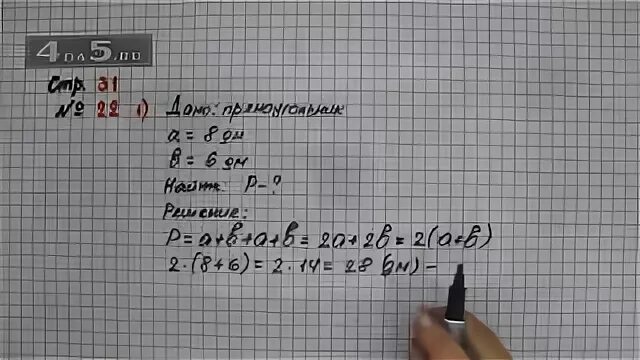 4 ОЛ 5.ПО
Стр. 31
№ 22 1) Дано: прямоугольник
a = 8 дм
b = 6 дм
Найти: P - ?
Решение:
P = a+b+a+b = 2a+2b = 2(a+b)
2·(8+6) = 2·14 = 28 (дм) –